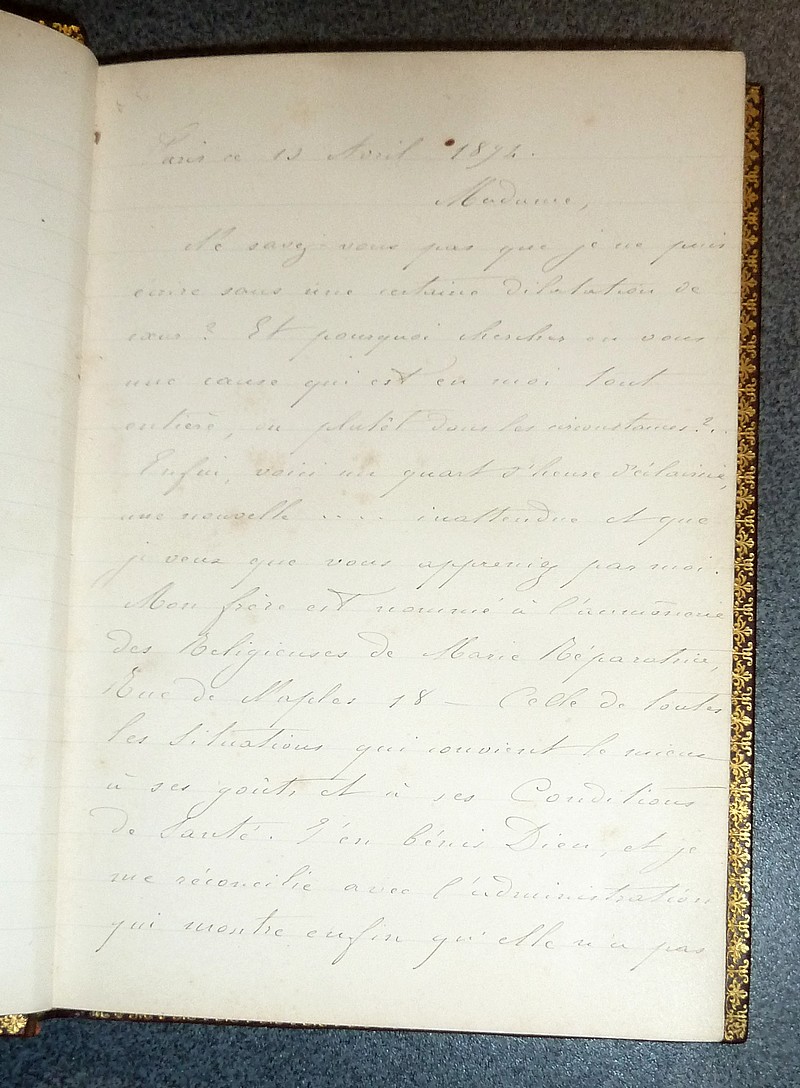 Paris ce 13 Avril 1872.
Madame,
Ne savez-vous pas que je ne puis
écrire sans une certaine dilatation de
cœur ? Et pourquoi chercher en vous
une cause qui est en moi tout
entière, ou plutôt dans les circonstances ?.
Enfin, voici un quart d'heure d'éclaircie,
une nouvelle .... inattendue et que
je veux que vous appreniez par moi.
Mon frère est nommé à l'aumônerie
des Religieuses de Marie Réparatrice,
Rue de Naples 18 — Celle de toutes
les situations qui convient le mieux
à ses goûts et à ses Conditions
de Santé. J'en bénis Dieu, et je
me réconcilie avec l'administration
qui montre enfin qu'elle n'a pas